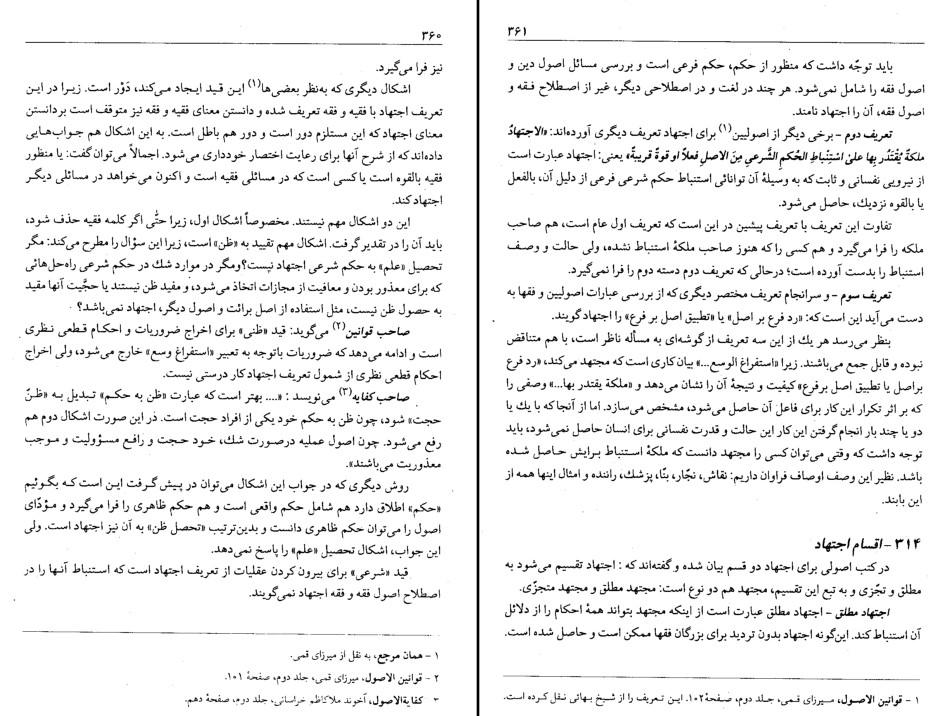 ۳۶۰
نیز فرا می‌گیرد.
اشکال دیگری که به‌نظر بعضی‌ها(۱) این قید ایجاد می‌کند، دَوْر است. زیرا در این
تعریف اجتهاد با فقیه و فقه تعریف شده و دانستن معنای فقیه و فقه نیز متوقف است بردانستن
معنای اجتهاد که این مستلزم دور است و دور هم باطل است. به این اشکال هم جواب‌هایی
داده‌اند که از شرح آنها برای رعایت اختصار خودداری می‌شود. اجمالاً می‌توان گفت: یا منظور
فقیه بالقوه است یا کسی است که در مسائلی فقیه است و اکنون می‌خواهد در مسائلی دیگر
اجتهاد کند.
این دو اشکال مهم نیستند. مخصوصاً اشکال اول، زیرا حتّی اگر کلمه فقیه حذف شود،
باید آن را در تقدیر گرفت. اشکال مهم تقیید به «ظن» است، زیرا این سؤال را مطرح می‌کند: مگر
تحصیل «علم» به حکم شرعی اجتهاد نیست؟ ومگر در موارد شك در حکم شرعی راه‌حل‌هائی
که برای معذور بودن و معافیت از مجازات اتخاذ می‌شود، و مفید ظن نیستند یا حجّیت آنها مقید
به حصول ظن نیست، مثل استفاده از اصل برائت و اصول دیگر، اجتهاد نمی‌باشد؟
صاحب قوانین(۲) می‌گوید: قید «ظنی» برای اخراج ضروریات و احکام قطعی نظری
است و ادامه می‌دهد که ضروریات باتوجه به تعبیر «استفراغ وسع» خارج می‌شود، ولی اخراج
احکام قطعی نظری از شمول تعریف اجتهاد کار درستی نیست.
صاحب کفایه(۳) می‌نویسد : «.... بهتر است که عبارت «ظن به حکم» تبدیل به «ظنّ
حجت» شود، چون ظن به حکم خود یکی از افراد حجت است. در این صورت اشکال دوم هم
رفع می‌شود. چون اصول عملیه درصورت شك، خود حجت و رافع مسؤولیت و موجب
معذوریت می‌باشند».
روش دیگری که در جواب این اشکال می‌توان در پیش گرفت این است که بگوئیم
«حکم» اطلاق دارد هم شامل حکم واقعی است و هم حکم ظاهری را فرا می‌گیرد و مؤدّای
اصول را می‌توان حکم ظاهری دانست و بدین‌ترتیب «تحصل ظن» به آن نیز اجتهاد است. ولی
این جواب، اشکال تحصیل «علم» را پاسخ نمی‌دهد.
قید «شرعی» برای بیرون کردن عقلیات از تعریف اجتهاد است که استنباط آنها را در
اصطلاح اصول فقه و فقه اجتهاد نمی‌گویند.
۱ – همان مرجع، به نقل از میرزای قمی.
۲ – قوانین الاصول، میرزای قمی، جلد دوم، صفحهٔ ۱۰۱.
۳ – کفایةالاصول، آخوند ملاکاظم خراسانی، جلد دوم، صفحهٔ دهم.
۳۶۱
باید توجّه داشت که منظور از حکم، حکم فرعی است و بررسی مسائل اصول دین و
اصول فقه را شامل نمی‌شود. هر چند در لغت و در اصطلاحی دیگر، غیر از اصطلاح فقه و
اصول فقه، آن را اجتهاد نامند.
تعریف دوم – برخی دیگر از اصولیین(۱) برای اجتهاد تعریف دیگری آورده‌اند: «الاجتهادُ
ملکةٌ یُقْتَدَر بِها علیٰ اسْتِنْباطِ الحُکمِ الشَّرعی مِنَ الاصلِ فعلاً او قوةً قریبةً» یعنی: اجتهاد عبارت است
از نیرویی نفسانی و ثابت که به وسیلهٔ آن توانائی استنباط حکم شرعی فرعی از دلیل آن، بالفعل
یا بالقوه نزدیك، حاصل می‌شود.
تفاوت این تعریف با تعریف پیشین در این است که تعریف اول عام است، هم صاحب
ملکه را فرا می‌گیرد و هم کسی را که هنوز صاحب ملکهٔ استنباط نشده، ولی حالت و وصف
استنباط را بدست آورده است؛ درحالی که تعریف دوم دسته دوم را فرا نمی‌گیرد.
تعریف سوم – و سرانجام تعریف مختصر دیگری که از بررسی عبارات اصولیین و فقها به
دست می‌آید این است که: «رد فرع بر اصل» یا «تطبیق اصل بر فرع» را اجتهاد گویند.
بنظر می‌رسد هر یك از این سه تعریف از گوشه‌ای به مسأله ناظر است، با هم متناقض
نبوده و قابل جمع می‌باشند. زیرا «استفراغ الوسع...» بیان کاری است که مجتهد می‌کند، «رد فرع
براصل یا تطبیق اصل برفرع» کیفیت و نتیجهٔ آن را نشان می‌دهد و «ملکة یقتدر بها...» وصفی را
که بر اثر تکرار این کار برای فاعل آن حاصل می‌شود، مشخص می‌سازد. اما از آنجا که با یك یا
دو یا چند بار انجام گرفتن این کار این حالت و قدرت نفسانی برای انسان حاصل نمی‌شود، باید
توجه داشت که وقتی می‌توان کسی را مجتهد دانست که ملکهٔ استنباط برایش حاصل شده
باشد. نظیر این وصف اوصاف فراوان داریم: نقاش، نجّار، بنّا، پزشك، راننده و امثال اینها همه از
این بابند.
۳۱۴ – اقسام اجتهاد
در کتب اصولی برای اجتهاد دو قسم بیان شده و گفته‌اند که : اجتهاد تقسیم می‌شود به
مطلق و تجّزی و به تبع این تقسیم، مجتهد هم دو نوع است: مجتهد مطلق و مجتهد متجزّی.
اجتهاد مطلق – اجتهاد مطلق عبارت است از اینکه مجتهد بتواند همهٔ احکام را از دلائل
آن استنباط کند. این‌گونه اجتهاد بدون تردید برای بزرگان فقها ممکن است و حاصل شده است.
۱ – قوانین الاصول، میرزای قمی، جلد دوم، صفحهٔ۱۰۲. این تعریف را از شیخ بهائی نقل کرده است.